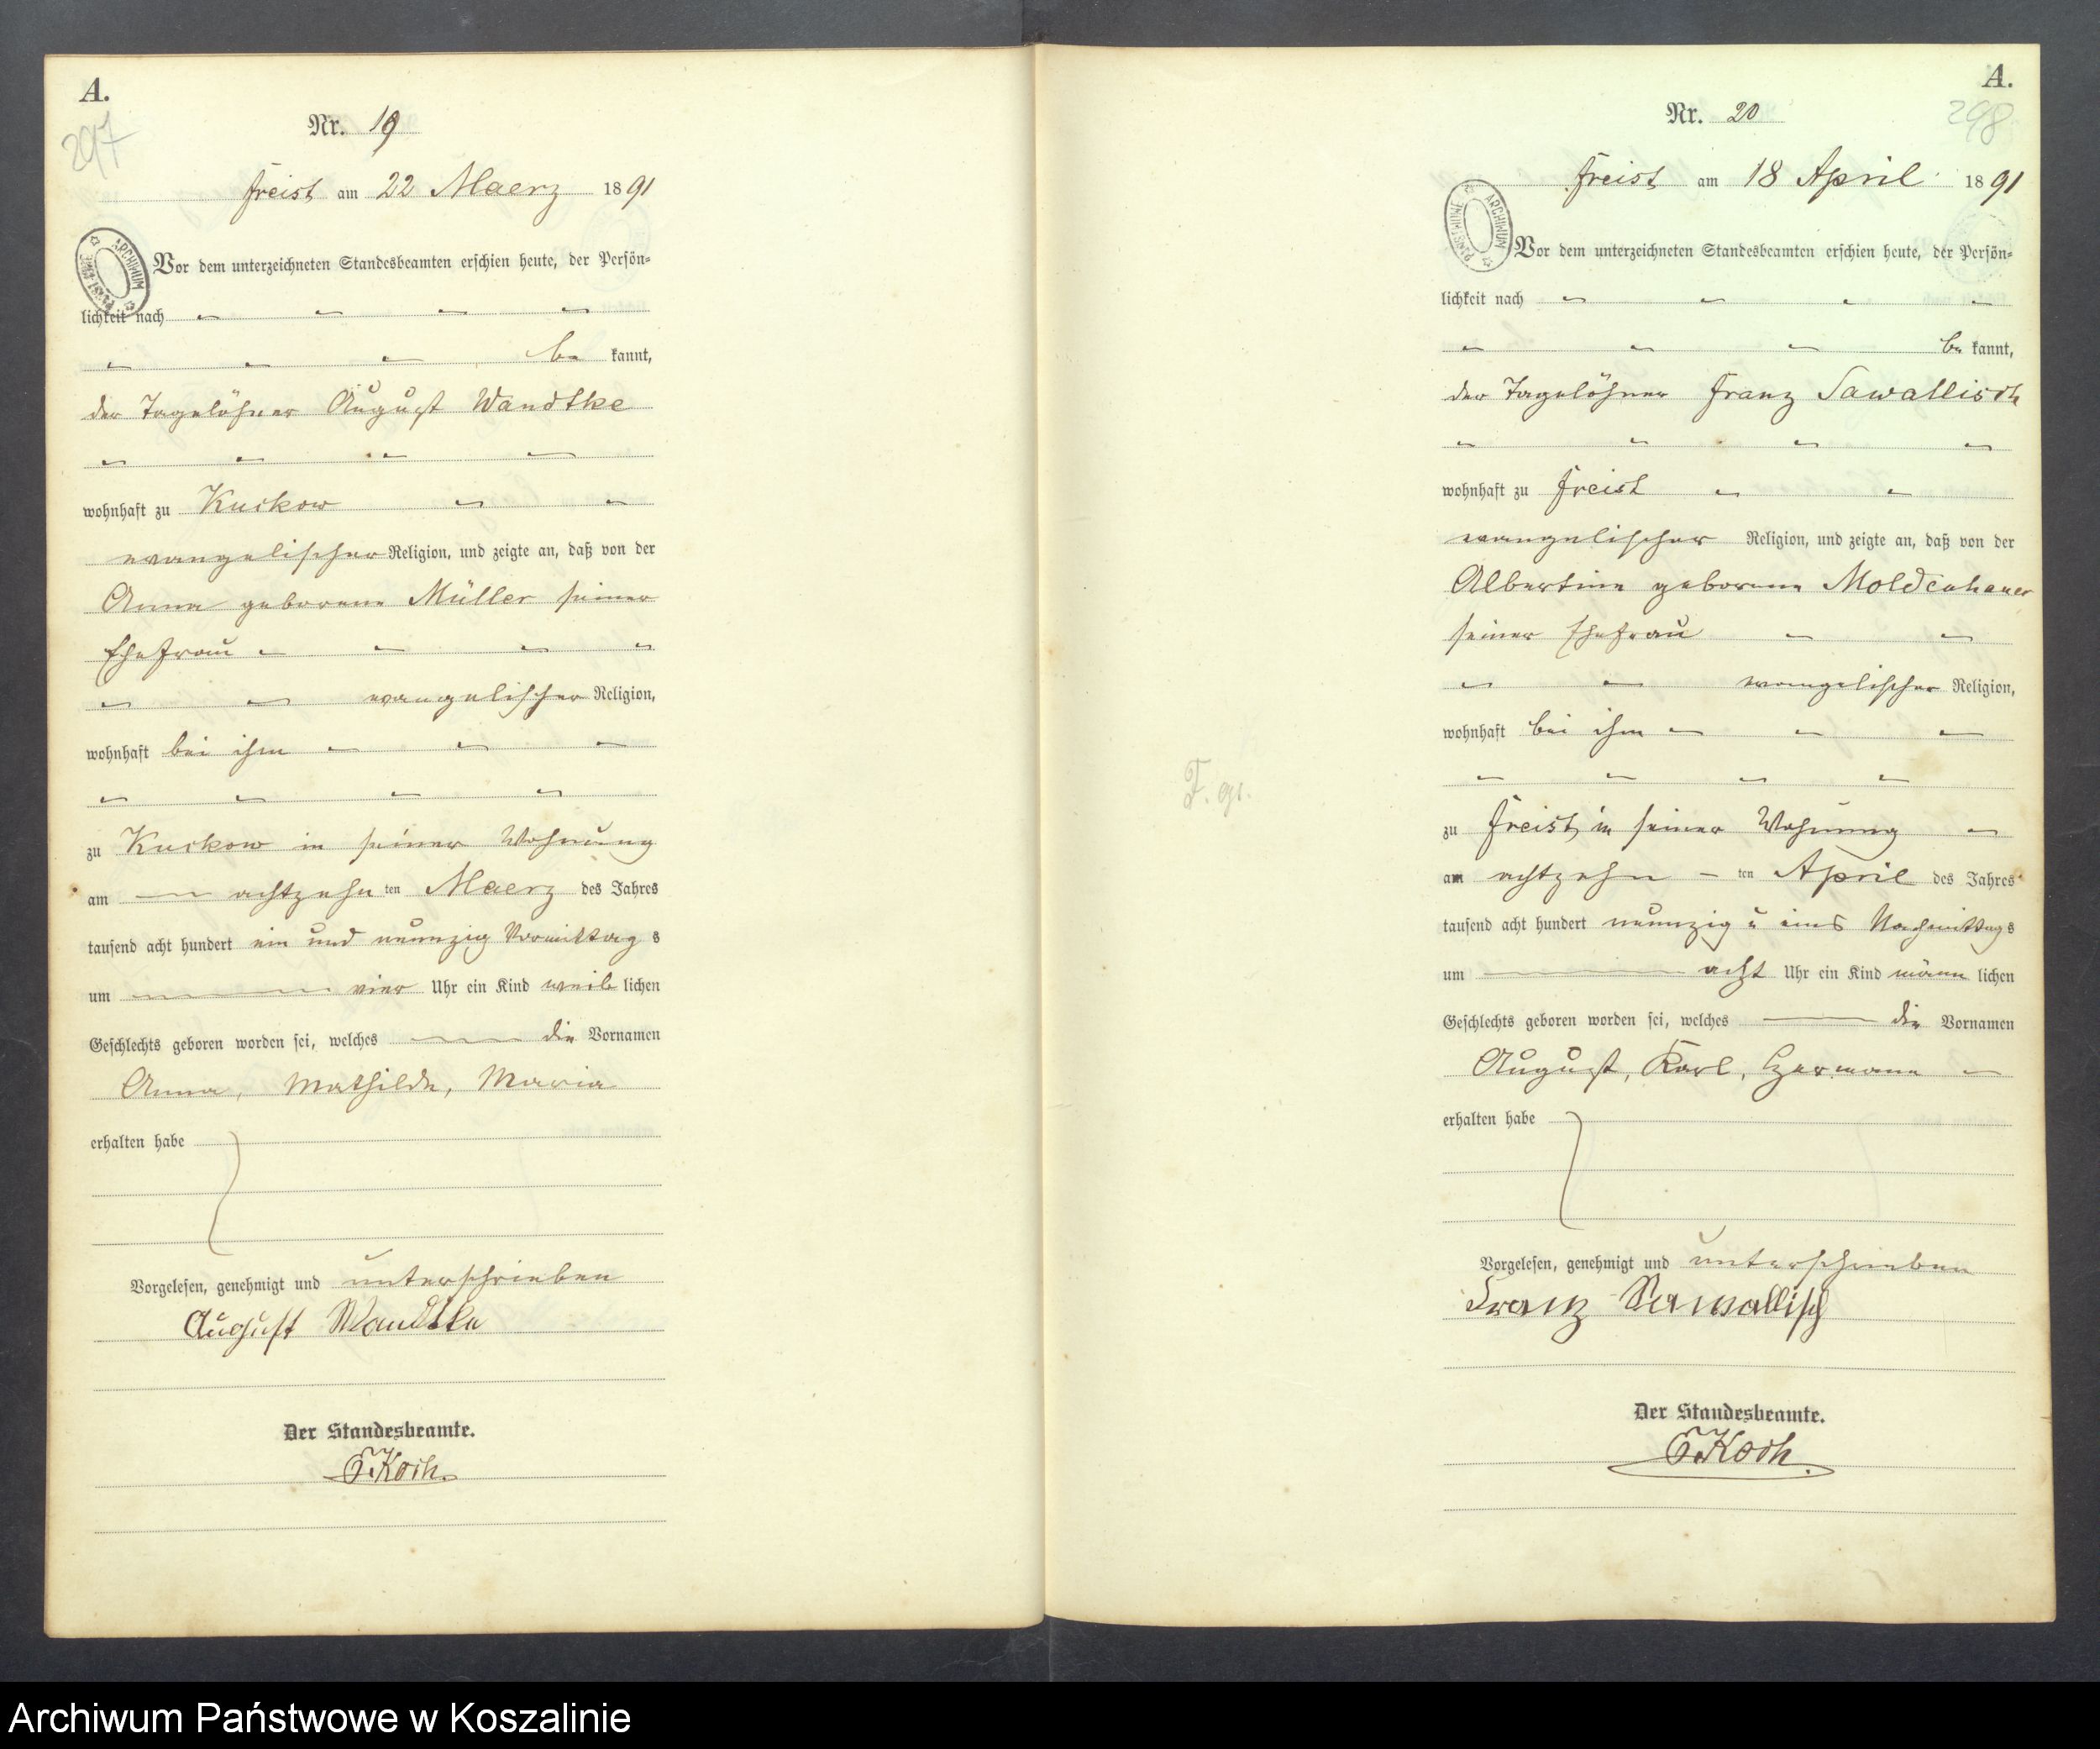 A.
297
Nr. 19
Freist am 22 Maerz 1891
Vor dem unterzeichneten Standesbeamten erschien heute, der Persön-
lichkeit nach
be kannt,
der Tagelöhner August Wandtke
wohnhaft zu Kuckow
evangelischer Religion, und zeigte an, daß von der
Anna geborene Müller seiner
Ehefrau
evangelischer Religion,
wohnhaft bei ihm
zu Kuckow in seiner Wohnung
am achtzehn ten Maerz des Jahres
tausend acht hundert ein und neunzig Vormittag s
um vier Uhr ein Kind weib lichen
Geschlechts geboren worden sei, welches die Vornamen
Anna, Mathilde, Maria
erhalten habe
Vorgelesen, genehmigt und unterschrieben
August Wandtke
Der Standesbeamte.
Koch.
ARCHIWUM PAŃSTWOWE
A.
298
Nr. 20
Freist am 18 April 1891
Vor dem unterzeichneten Standesbeamten erschien heute, der Persön-
lichkeit nach
be kannt,
der Tagelöhner Franz Sawallisch
wohnhaft zu Freist
evangelischer Religion, und zeigte an, daß von der
Albertine geborene Moldenhauer
seiner Ehefrau
evangelischer Religion,
wohnhaft bei ihm
zu Freist in seiner Wohnung
am achtzehn ten April des Jahres
tausend acht hundert neunzig u eins Nachmittag s
um acht Uhr ein Kind männ lichen
Geschlechts geboren worden sei, welches die Vornamen
August, Karl, Hermann
erhalten habe
Vorgelesen, genehmigt und unterschrieben
Franz Sawallisch
Der Standesbeamte.
Koch.
ARCHIWUM PAŃSTWOWE
Archiwum Państwowe w Koszalinie